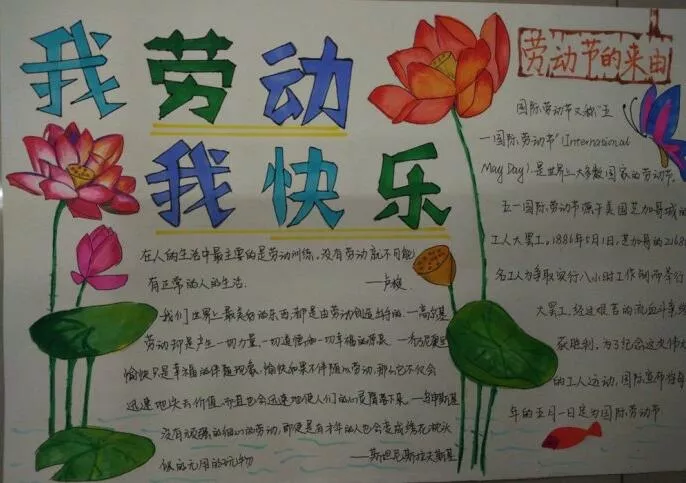 我劳动
我快乐
在人的生活中最主要的是劳动训练。没有劳动就不可能
有正常的人的生活。 ——卢梭
我们世界上最美好的东西,都是由劳动创造出来的。——高尔基
劳动却是产生一切力量、一切道德和一切幸福的源泉。
愉快只是幸福的伴随现象,愉快如果不伴随以劳动,那么它不仅会
迅速地失去价值,而且也会迅速地使人们的心灵堕落下来。——乌申斯基
没有顽强的细心的劳动,即使是有才华的人也会变成绣花枕头
似的无用的玩物 ——斯坦尼斯拉夫斯基
劳动节的来由
国际劳动节又称“五
一国际劳动节”(International
May Day),是世界上大多数国家的劳动节。
五一国际劳动节源于美国芝加哥城的
工人大罢工。1886年5月1日,芝加哥的21.6万
名工人为争取实行八小时工作制而举行
大罢工,经过艰苦的流血斗争,终
获胜利。为了纪念这次伟大
的工人运动,国际宣布将每
年的五月一日定为国际劳动节